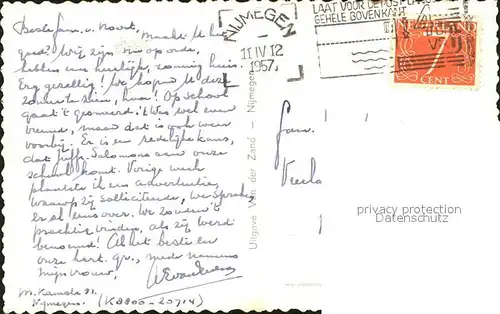 Beste fam. v. Noort,
Maakt U het
goed? Wij zijn nu op orde,
hebben een heerlijk, zonnig huis.
Erg gezellig! We hopen U deze
zomer te zien, hoor! Op school
gaat 't gesmeerd. 't Was wel even
vreemd, maar dat is ook weer
voorbij. Er is een redelijke kans,
dat Juffr. Salomons aan onze
school komt. Vorige week
plaatste ik een advertentie,
waarop zij solliciteerde, we spraken
er al eens over. We zouden 't
prachtig vinden, als zij werd
benoemd! Al het beste en
onze hart. gr., mede namens
mijn vrouw,
Nijmegen.
(K8800-20714)
Uitgave Van der Zand — Nijmegen
NIJMEGEN
11 IV 12
1957
LAAT VOOR DE POST
GEHELE BOVENKANT
7
CENT
fam.
privacy protection
for Veikkos-archiv